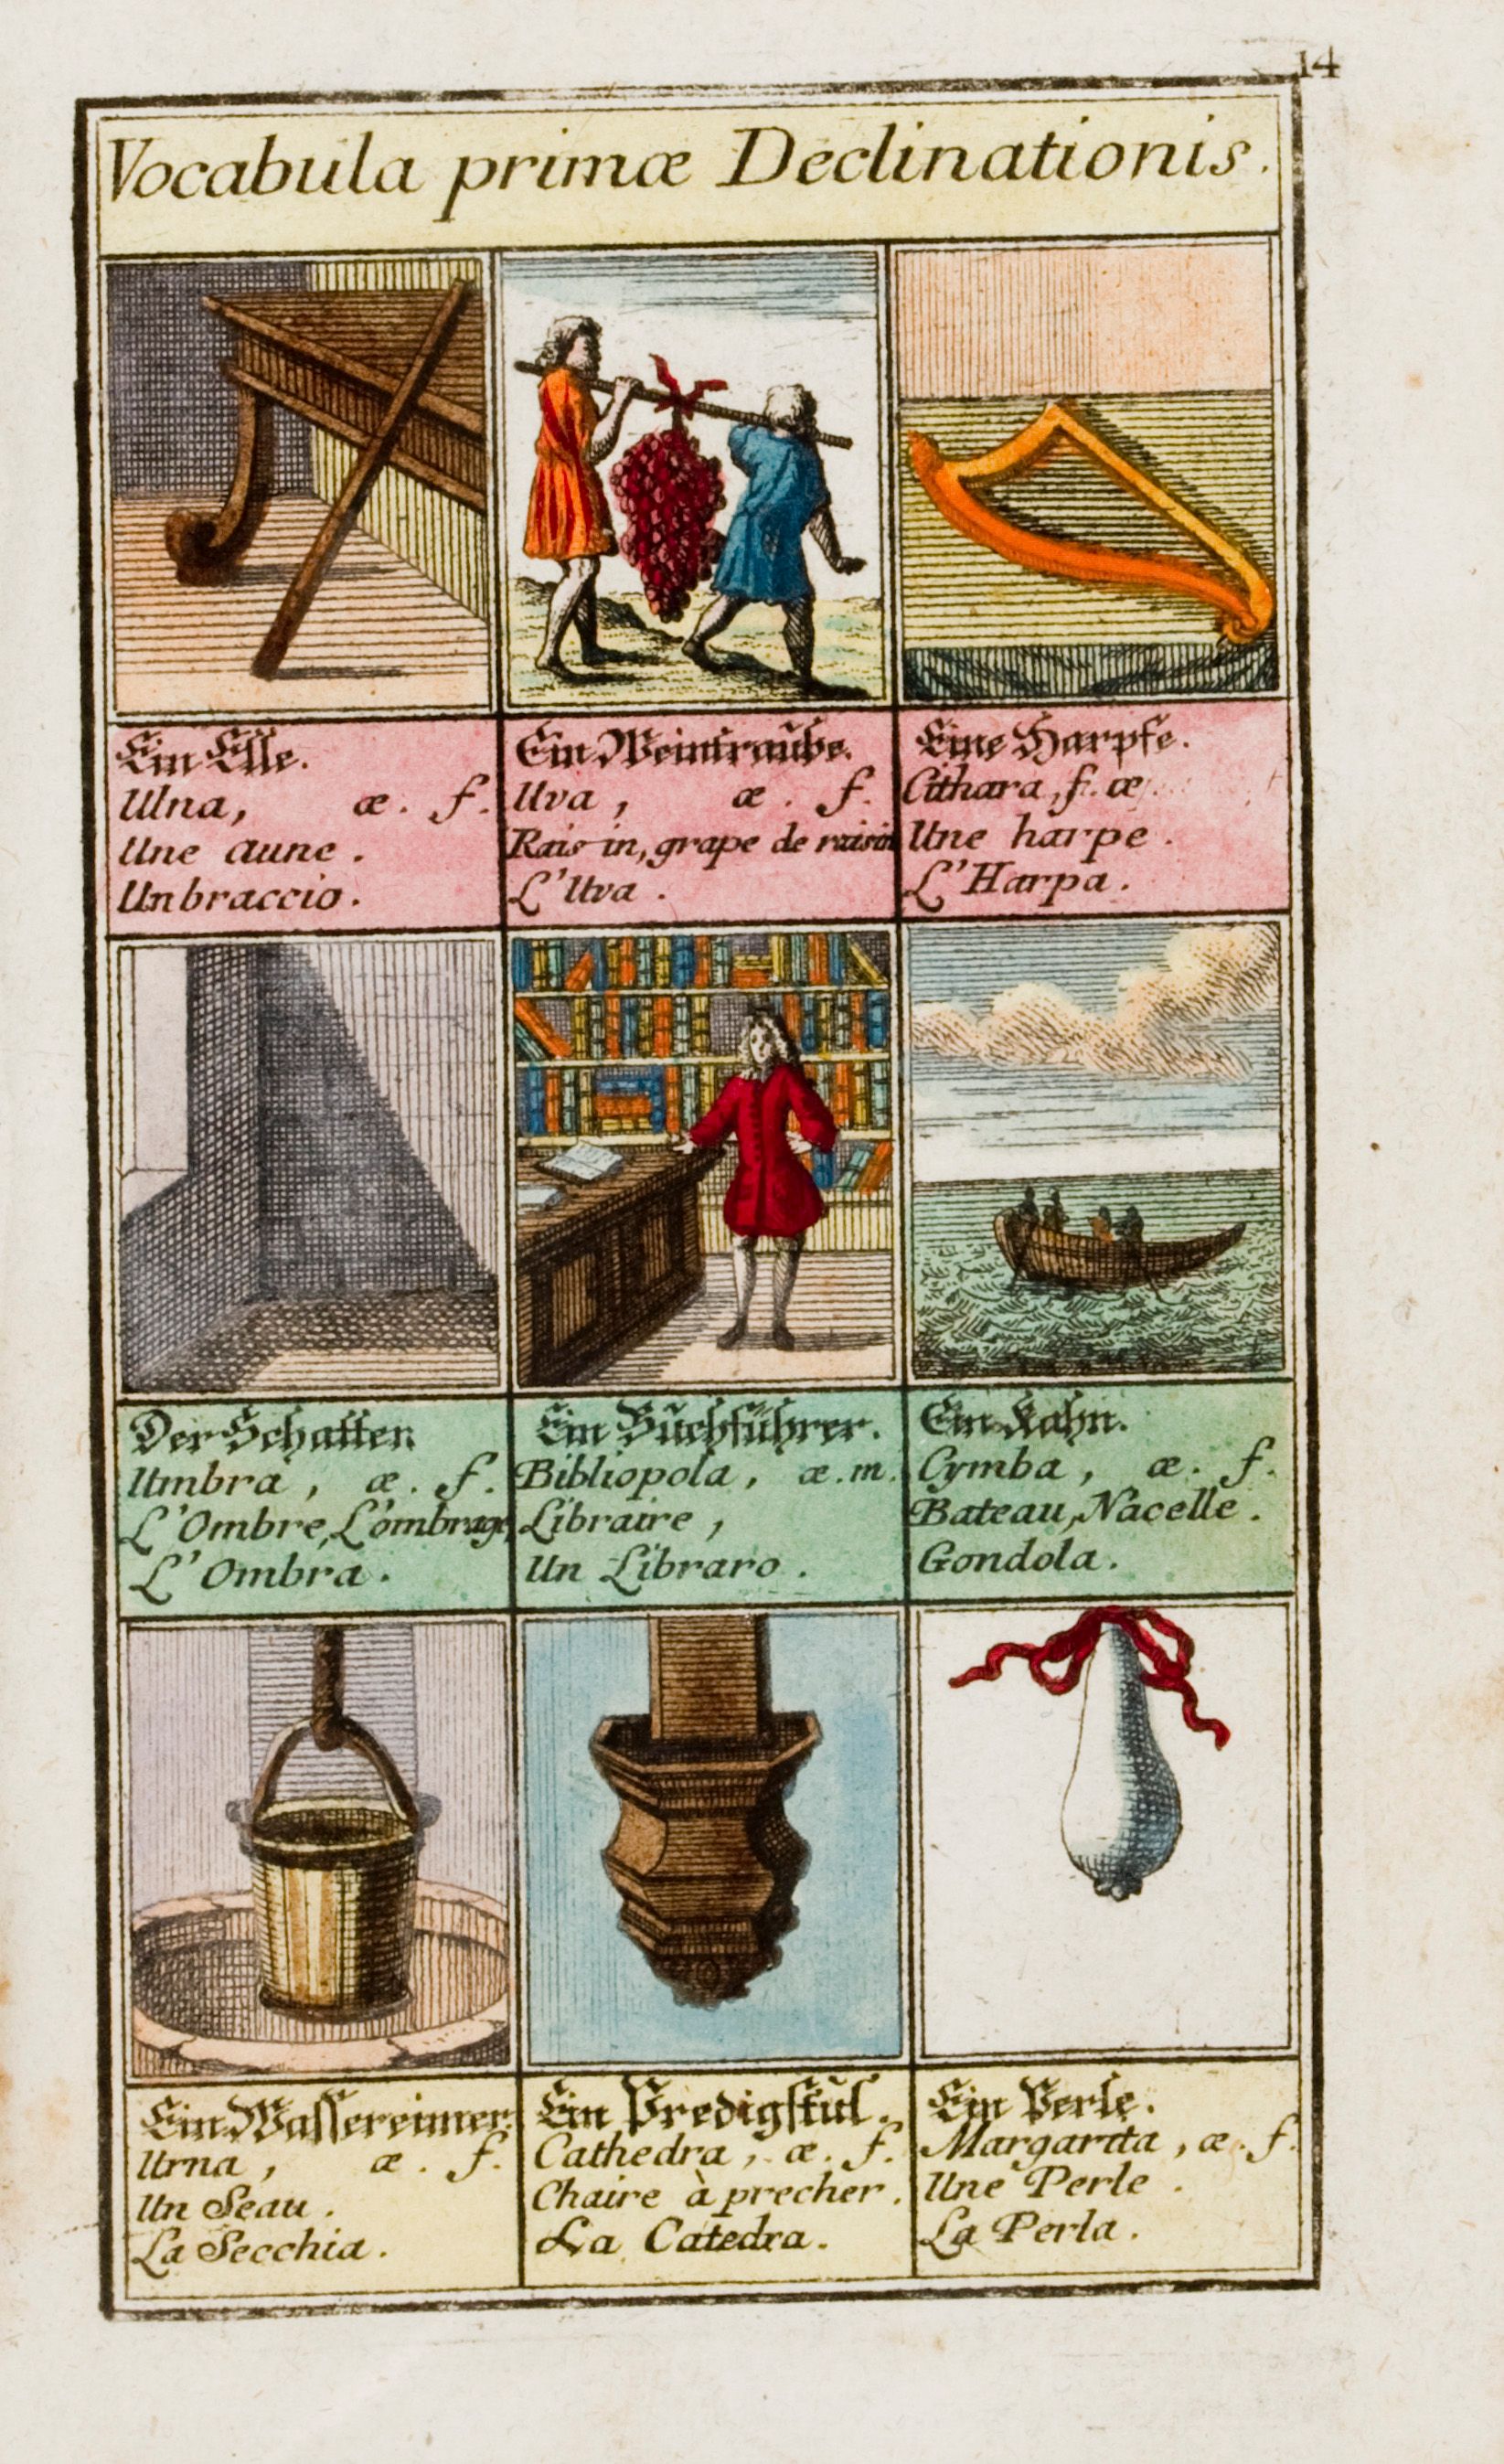 14
Vocabula primæ Declinationis.
Ein Elle.
Ulna, æ. f.
Une aune.
Un braccio.
Ein Weintraube.
Uva, æ. f.
Raisin, grape de raisin
L'Uva.
Eine Harpfe.
Cithara, f. æ.
Une harpe.
L'Harpa.
Der Schatten
Umbra, æ. f.
L'Ombre, L'ombrage,
L'Ombra.
Ein Buchführer.
Bibliopola, æ. m.
Libraire,
Un Libraro.
Ein Kahn.
Cymba, æ. f.
Bateau, Nacelle.
Gondola.
Ein Wassereimer.
Urna, æ. f.
Un Seau.
La Secchia.
Ein Predigstul.
Cathedra, æ. f.
Chaire à precher.
La Catedra.
Ein Perle.
Margarita, æ. f.
Une Perle.
La Perla.